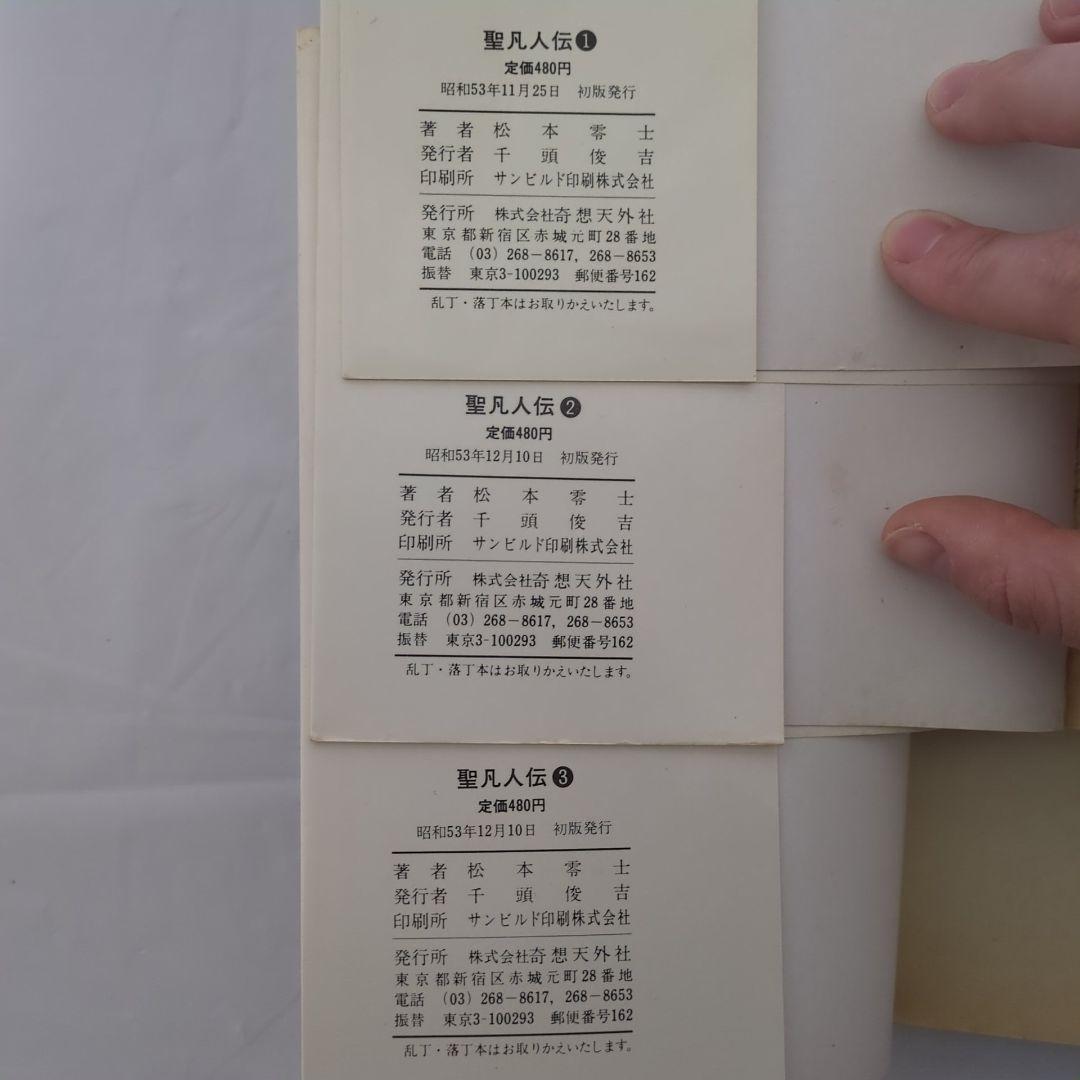 聖凡人伝❶
定価480円
昭和53年11月25日 初版発行
著者 松本零士
発行者 千頭俊吉
印刷所 サンビルド印刷株式会社
発行所 株式会社奇想天外社
東京都新宿区赤城元町28番地
電話 (03) 268-8617, 268-8653
振替 東京3-100293 郵便番号162
乱丁・落丁本はお取りかえいたします。
聖凡人伝❷
定価480円
昭和53年12月10日 初版発行
著者 松本零士
発行者 千頭俊吉
印刷所 サンビルド印刷株式会社
発行所 株式会社奇想天外社
東京都新宿区赤城元町28番地
電話 (03) 268-8617, 268-8653
振替 東京3-100293 郵便番号162
乱丁・落丁本はお取りかえいたします。
聖凡人伝❸
定価480円
昭和53年12月10日 初版発行
著者 松本零士
発行者 千頭俊吉
印刷所 サンビルド印刷株式会社
発行所 株式会社奇想天外社
東京都新宿区赤城元町28番地
電話 (03) 268-8617, 268-8653
振替 東京3-100293 郵便番号162
乱丁・落丁本はお取りかえいたします。